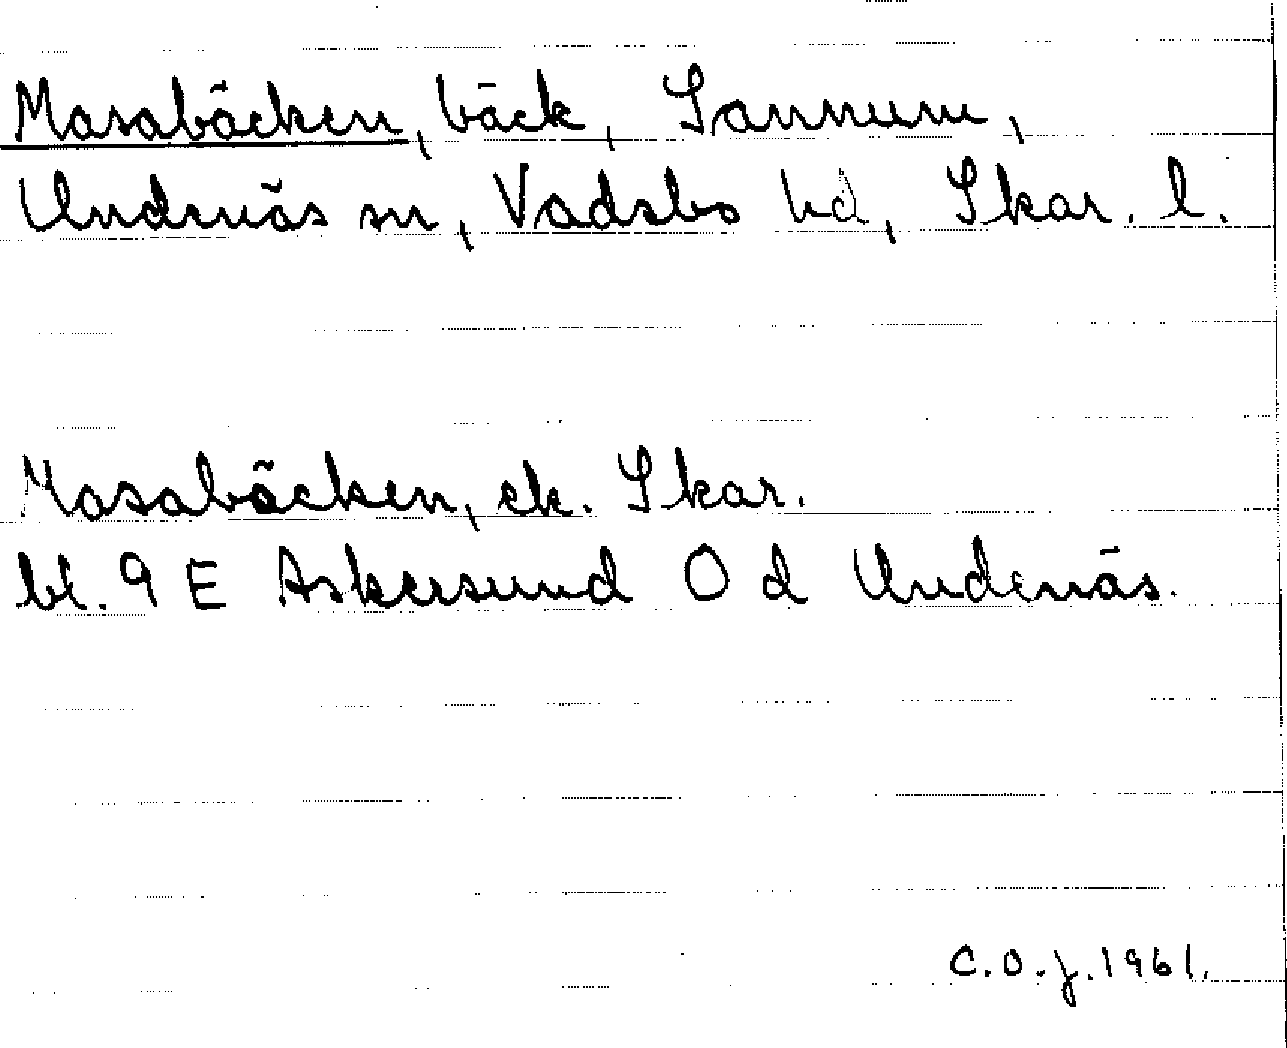 Masabäcken, bäck, Sannum,
Undenäs sn, Vadsbo hd, Skar. l.
Masabäcken, ek. Skar.
bl. 9 E Askersund O d Undenäs.
C.O.J. 1961.